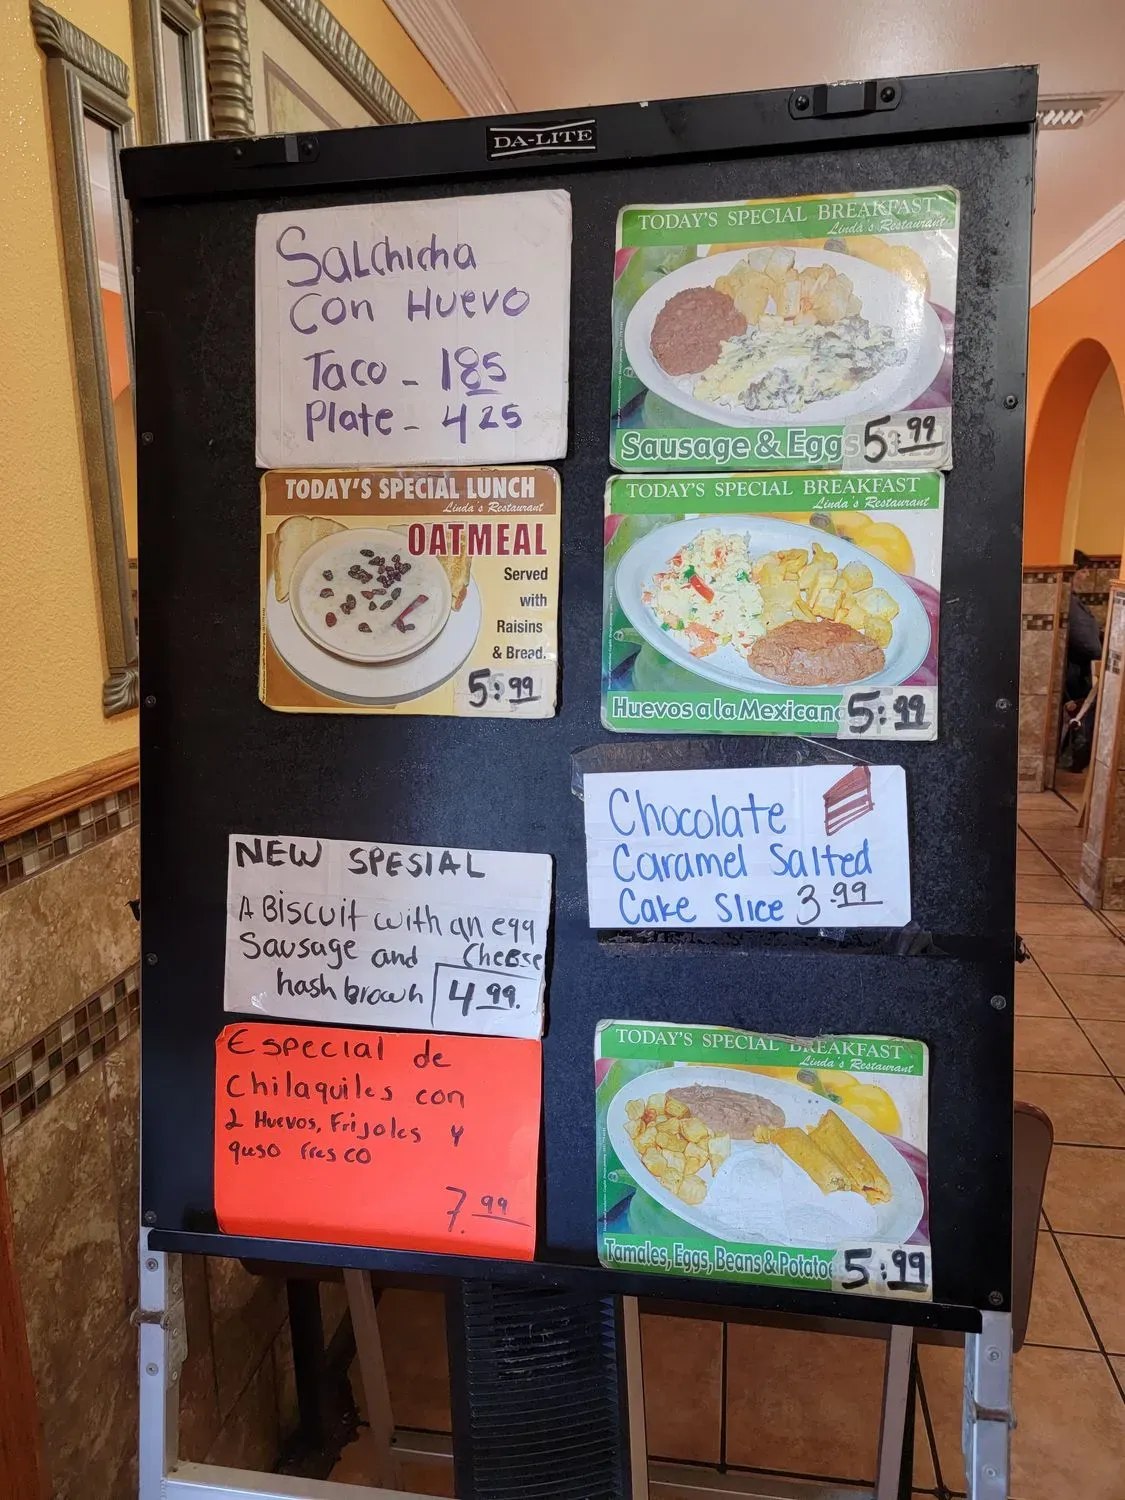 DA-LITE
Salchicha
con Huevo
Taco - 185
Plate - 425
TODAY'S SPECIAL LUNCH
Linda's Restaurant
OATMEAL
Served
with
Raisins
& Bread.
5.99
NEW SPESIAL
A BISCUIT with an egg
Sausage and Cheese
hash brown 4.99.
Especial de
Chilaquiles con
2 Huevos, Frijoles y
queso fresco
7.99
TODAY'S SPECIAL BREAKFAST
Linda's Restaurant
Sausage & Eggs 5.99
TODAY'S SPECIAL BREAKFAST
Linda's Restaurant
Huevos a la Mexicana 5.99
Chocolate
Caramel Salted
Cake Slice 3.99
TODAY'S SPECIAL BREAKFAST
Linda's Restaurant
Tamales, Eggs, Beans & Potatoe 5.99